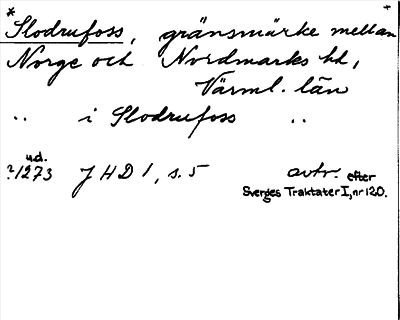 *Slodrufoss, gränsmärke mellan +
Norge och Nordmarks hd,
Värml. län
.. i Slodrufoss ..
u.d.
?1273 JHD 1, s. 5 avtr. efter
Sverges Traktater I, nr 120.